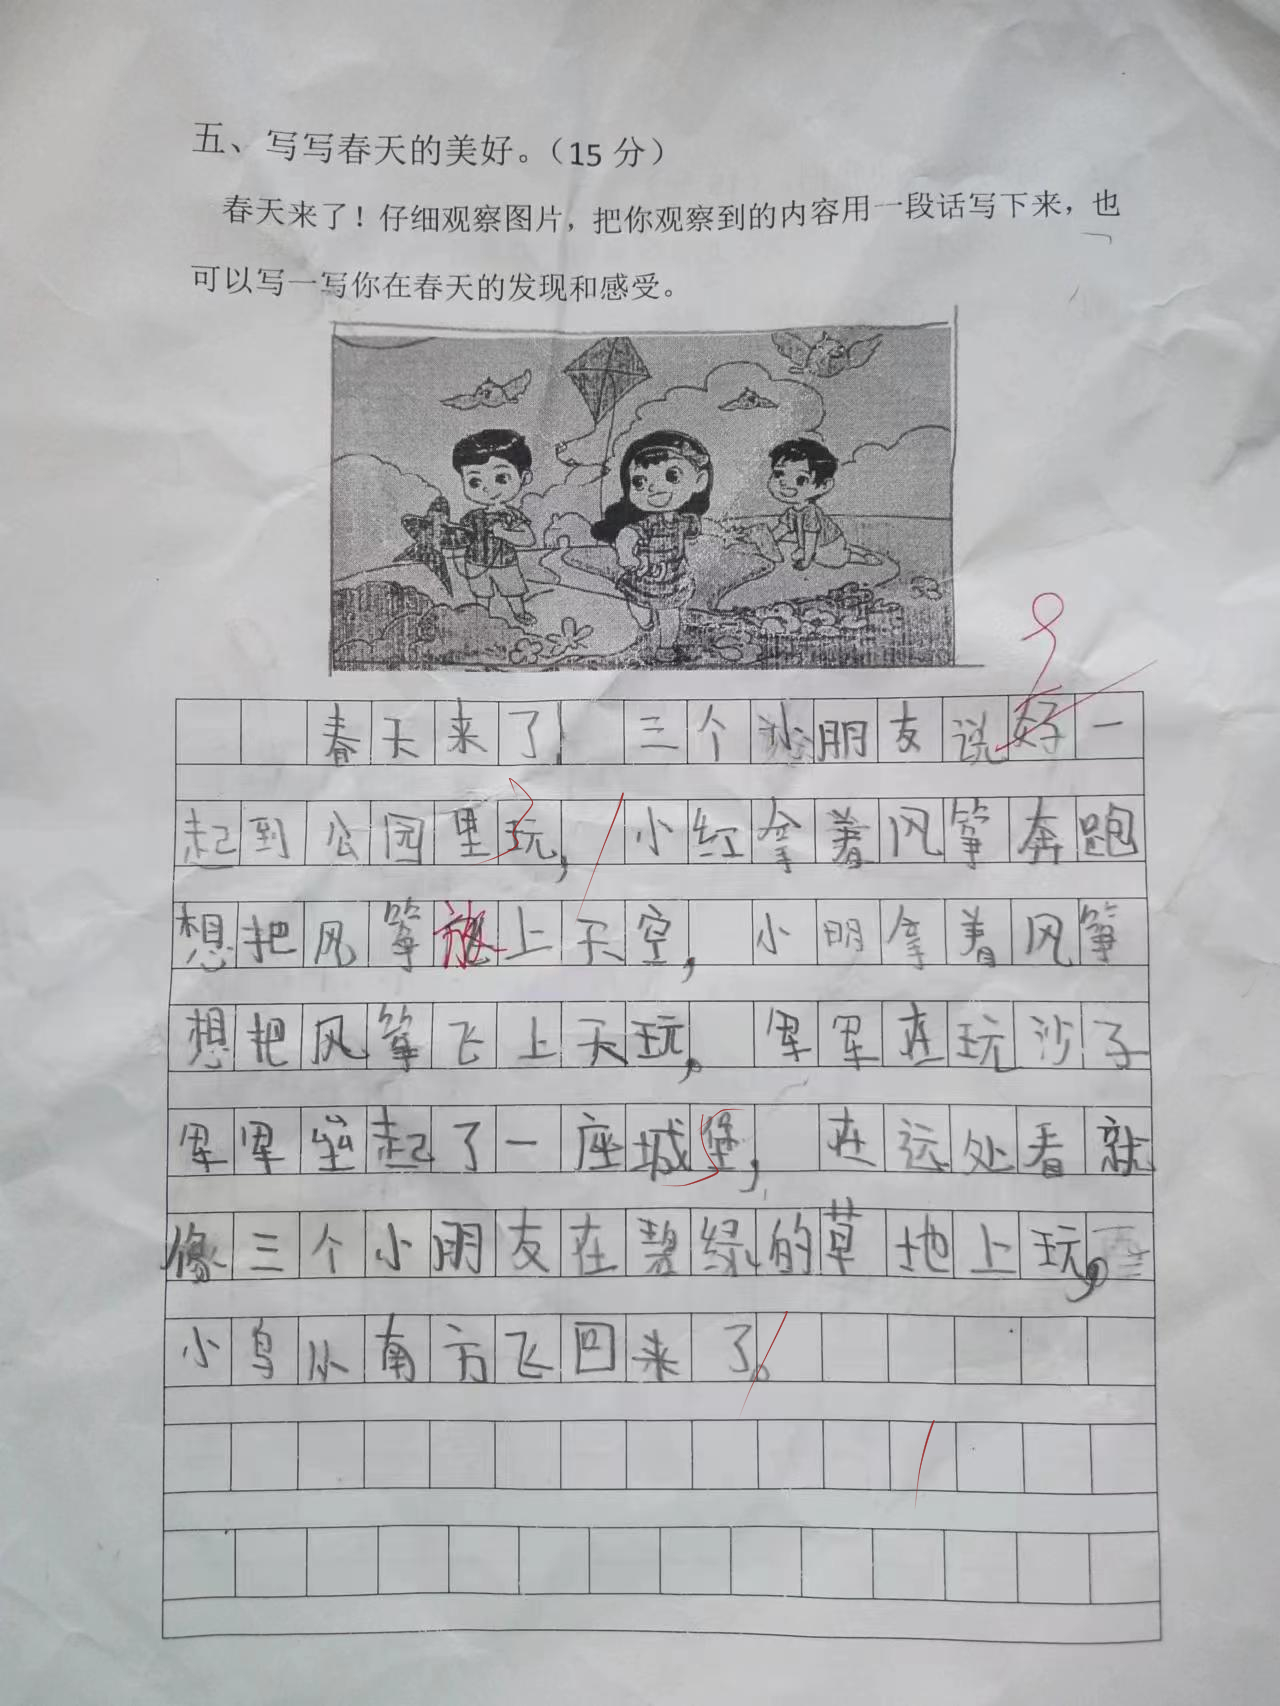 五、写写春天的美好。（15 分）
春天来了！仔细观察图片，把你观察到的内容用一段话写下来，也
可以写一写你在春天的发现和感受。
春天来了！三个小朋友说好一
起到公园里玩，小红拿着风筝奔跑
想把风筝放上天空，小明拿着风筝
想把风筝飞上天玩，军军在玩沙子
军军垒起了一座城堡，在远处看就
像三个小朋友在碧绿的草地上玩，
小鸟从南方飞回来了。